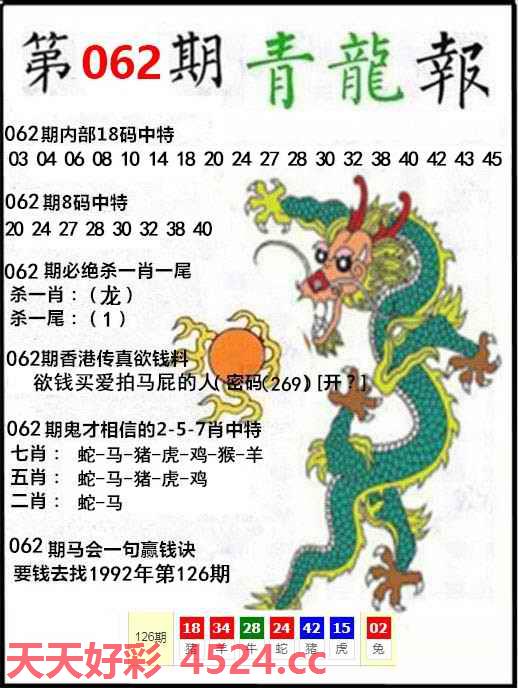 第062期青龍報
062期内部18码中特
03 04 06 08 10 14 18 20 24 27 28 30 32 38 40 42 43 45
062期8码中特
20 24 27 28 30 32 38 40
062期必绝杀一肖一尾
杀一肖：（龙）
杀一尾：（1）
062期香港传真欲钱料
欲钱买爱拍马屁的人(密码(269)[开？]
062期鬼才相信的2-5-7肖中特
七肖： 蛇-马-猪-虎-鸡-猴-羊
五肖： 蛇-马-猪-虎-鸡
二肖： 蛇-马
062期马会一句赢钱诀
要钱去找1992年第126期
126期 18 34 28 24 42 15 02
猪 羊 牛 蛇 猪 虎 兔
天天好彩 4524.cc